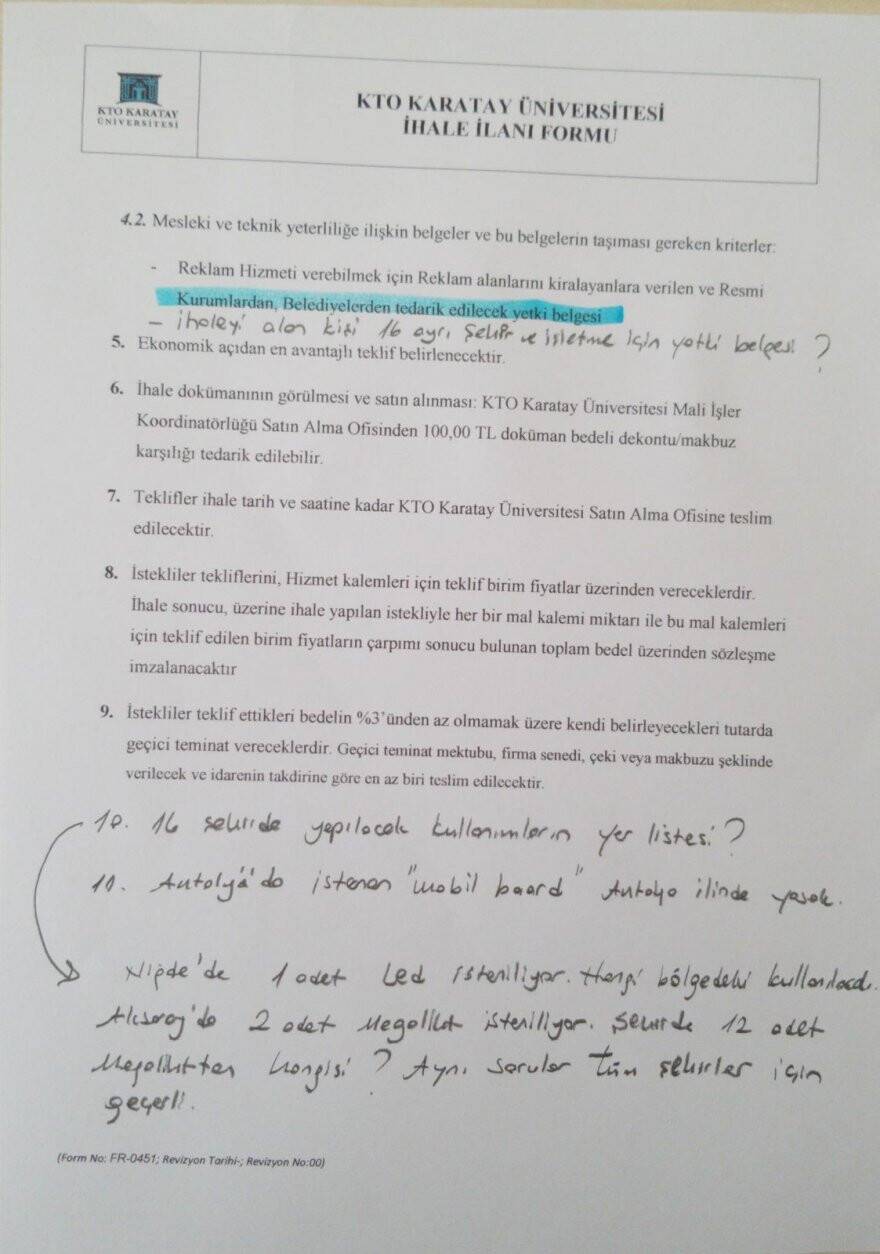 KTO KARATAY
ÜNİVERSİTESİ
KTO KARATAY ÜNİVERSİTESİ
İHALE İLANI FORMU
4.2. Mesleki ve teknik yeterliliğe ilişkin belgeler ve bu belgelerin taşıması gereken kriterler:
- Reklam Hizmeti verebilmek için Reklam alanlarını kiralayanlara verilen ve Resmi
Kurumlardan, Belediyelerden tedarik edilecek yetki belgesi
- ihaleyi alan kişi 16 ayrı şehir ve işletme için yetki belgesi ?
5. Ekonomik açıdan en avantajlı teklif belirlenecektir.
6. İhale dokümanının görülmesi ve satın alınması: KTO Karatay Üniversitesi Mali İşler
Koordinatörlüğü Satın Alma Ofisinden 100,00 TL doküman bedeli dekontu/makbuz
karşılığı tedarik edilebilir.
7. Teklifler ihale tarih ve saatine kadar KTO Karatay Üniversitesi Satın Alma Ofisine teslim
edilecektir.
8. İstekliler tekliflerini, Hizmet kalemleri için teklif birim fiyatlar üzerinden vereceklerdir.
İhale sonucu, üzerine ihale yapılan istekliyle her bir mal kalemi miktarı ile bu mal kalemleri
için teklif edilen birim fiyatların çarpımı sonucu bulunan toplam bedel üzerinden sözleşme
imzalanacaktır
9. İstekliler teklif ettikleri bedelin %3'ünden az olmamak üzere kendi belirleyecekleri tutarda
geçici teminat vereceklerdir. Geçici teminat mektubu, firma senedi, çeki veya makbuzu şeklinde
verilecek ve idarenin takdirine göre en az biri teslim edilecektir.
10. 16 şehirde yapılacak kullanımların yer listesi ?
11. Antalya'da istenen "mobil baard" Antalya ilinde yasak.
Niğde'de 1 adet Led isteniliyor. Hangi bölgedeki kullanılacak.
Aksaray'da 2 adet Megalight isteniliyor. Şehirde 12 adet
Megalightten hangisi ? Aynı sorular tüm şehirler için
geçerli.
(Form No: FR-0451; Revizyon Tarihi-; Revizyon No:00)